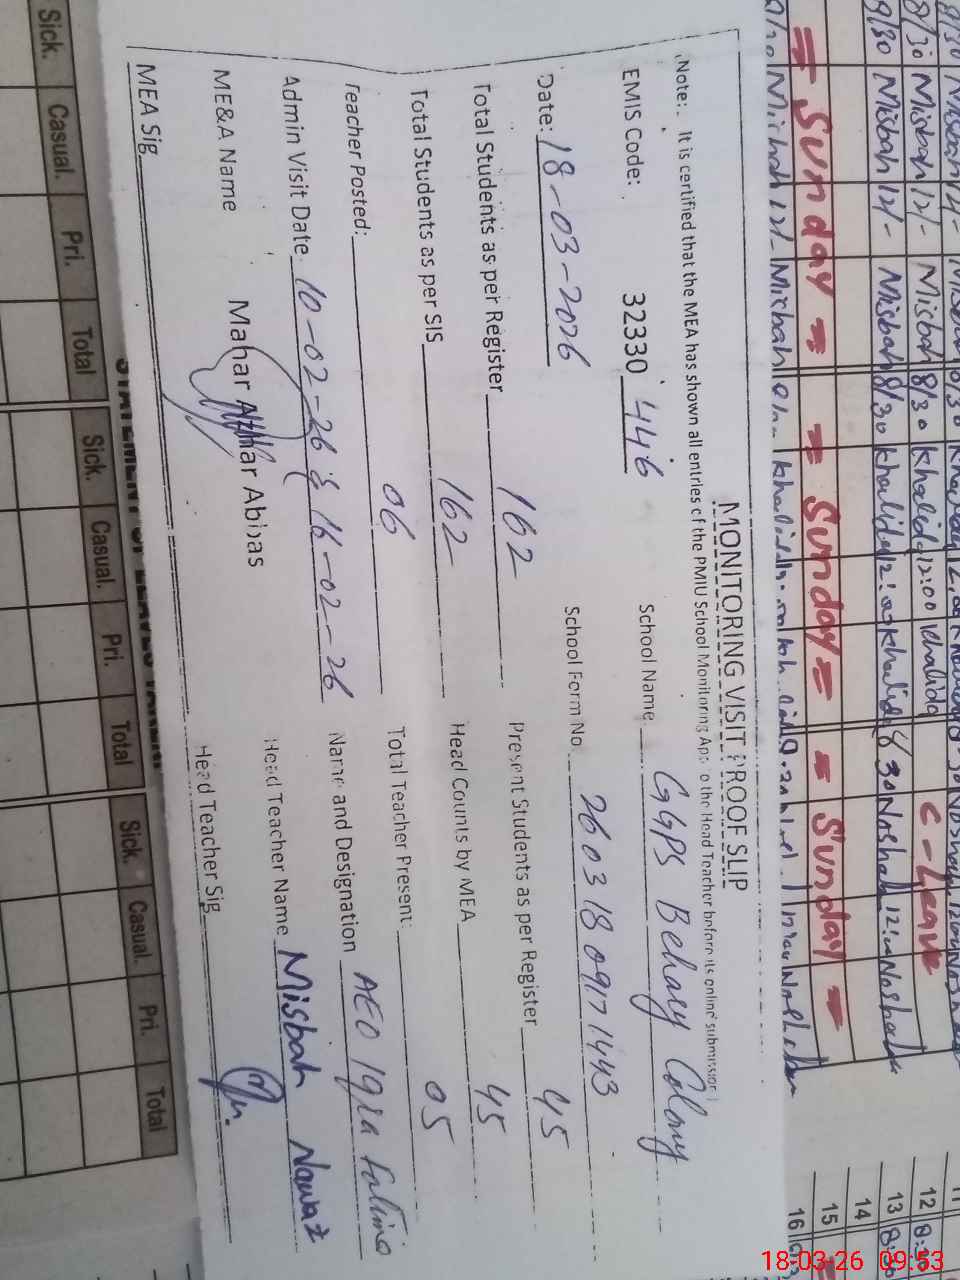 MONITORING VISIT PROOF SLIP
Note: It is certified that the MEA has shown all entries of the PMIU School Monitoring App to the Head Teacher before its online submission
EMIS Code: 32330 446 School Name GGPS Behary Colony
Date: 18-03-2026 School Form No. 26031809171443
Total Students as per Register 162 Present Students as per Register 45
Total Students as per SIS 162 Head Counts by MEA 45
Teacher Posted: 06 Total Teacher Present: 05
Admin Visit Date 10-02-26 & 16-02-26 Name and Designation AEO Iqra Fatima
ME&A Name Mahar Azhar Abbas Head Teacher Name Misbah Nawaz
MEA Sig Head Teacher Sig
= Sunday = = Sunday = = Sunday =
C-Leave
8/30 Misbah 12/- Misbah 8/30 Khalida 12:00 Khalida
8/30 Misbah 12/- Misbah 8/30 Khalida 12:00 Khalida 8/30 Noshab
12
13
14
15
16
STATEMENT OF LEAVES TAKEN
Sick. Casual. Pri. Total Sick. Casual. Pri. Total Sick. Casual. Pri. Total
18-03-26 09:53